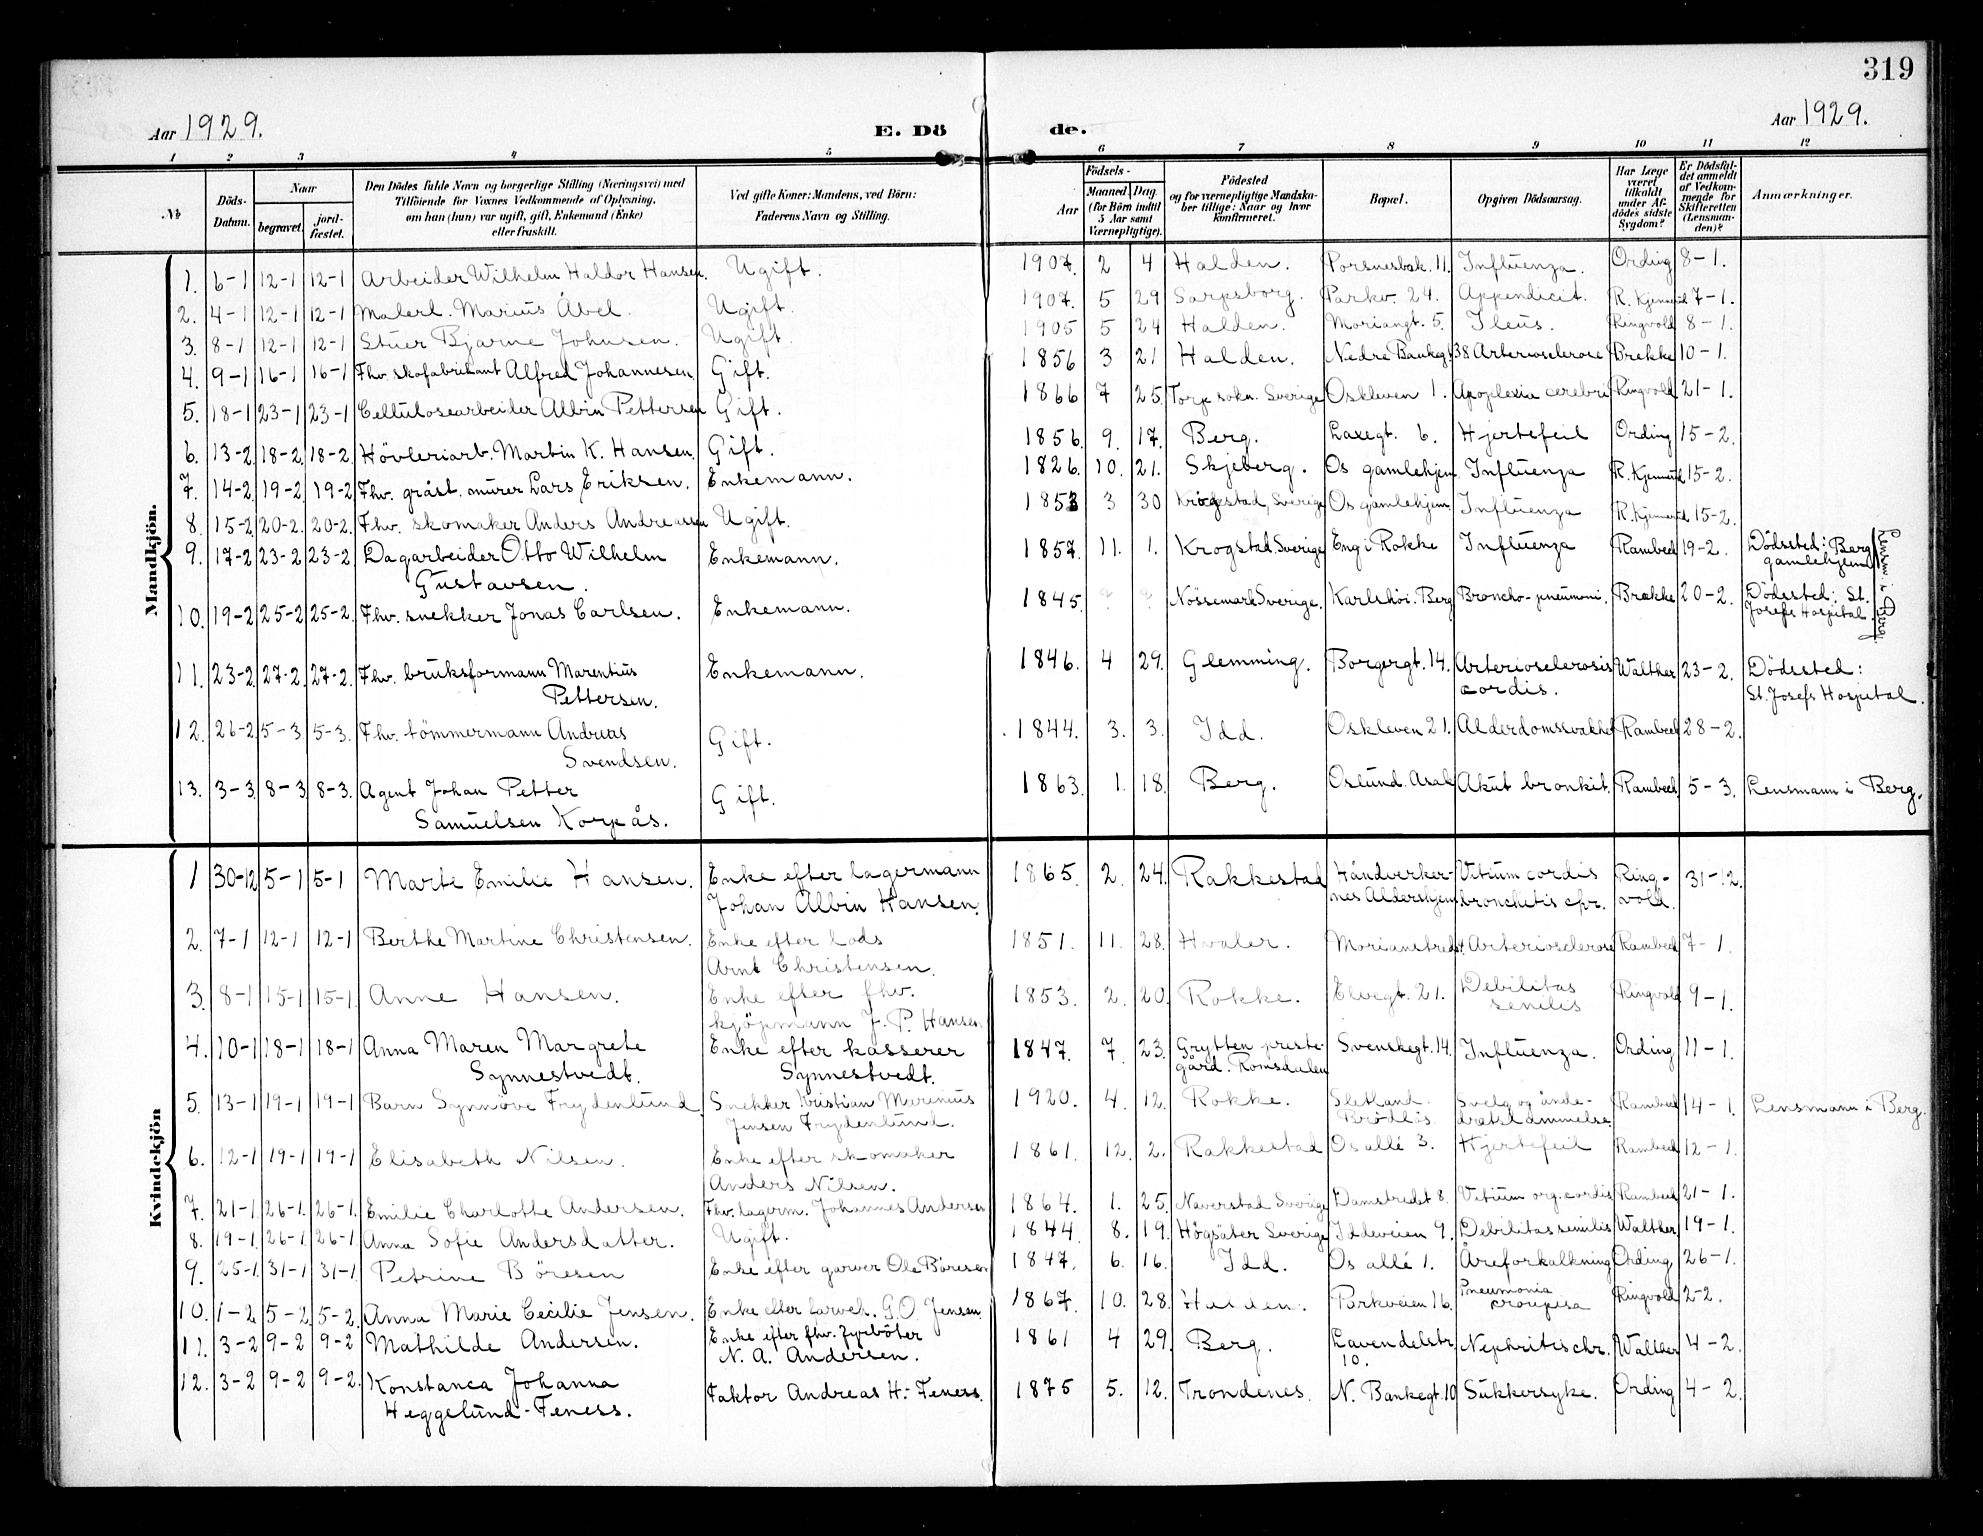 319
Aar 1929. E. Dö de. Aar 1929.
1 2 3 4 5 6 7 8 9 10 11 12
№ Döds-Datum. Naar begravet. jord-fæstet. Den Dödes fulde Navn og borgerlige Stilling (Næringsvei) med Tilföiende for Voxnes Vedkommende af Oplysning, om han (hun) var ugift, gift, Enkemand (Enke) eller fraskilt. Ved gifte Koner: Mandens, ved Börn: Faderens Navn og Stilling. Födsels- Aar Maaned. Dag. (for Börn indtil 5 Aar samt Værnepligtige). Födested og for værnepligtige Mandskaber tillige: Naar og hvor konfirmeret. Bopæl. Opgiven Dödsaarsag. Har Læge været tilkaldt under Afdödes sidste Sygdom? Er Dödsfaldet anmeldt af Vedkommende for Skifteretten (Lensmanden)? Anmærkninger.
Mandkjön.
1. 6-1 12-1 12-1 Arbeider Wilhelm Haldor Hansen. Ugift. 1907. 2 4 Halden. Porsnesbak. 11. Influenza. Ording 8-1.
2. 4-1 12-1 12-1 Malerl. Marius Åbel. Ugift. 1907. 5 29 Sarpsborg. Parkv. 24. Appendicit. R. Kjennerud 7-1.
3. 8-1 12-1 12-1 Stuer Bjarne Johnsen. Ugift. 1905 5 24 Halden. Moriangt. 5. Ileus. Ringvold 8-1.
4. 9-1 16-1 16-1 Fhv. skofabrikant Alfred Johannesen. Gift. 1856 3 21 Halden. Nedre Bankegt 38 Arteriosclerose Brekke 10-1.
5. 18-1 23-1 23-1 Cellulosearbeider Albin Pettersen Gift. 1866 7 25. Torp sokn. Sverige Oskleven 1. Apoplexia cerebri Ringvold 21-1.
6. 13-2. 18-2. 18-2. Hövleriarb. Martin K. Hansen. Gift. 1856. 9. 17. Berg. Laxegt. 6. Hjertefeil Ording 15-2.
7. 14-2. 19-2 19-2 Fhv. gråst. murer Lars Eriksen. Enkemann. 1826. 10. 21. Skjeberg. Os gamlehjem. Influenza R. Kjennerud 15-2.
8. 15-2 20-2. 20-2. Fhv. skomaker Anders Andreassen Ugift. 1853 3 30 Krogstad, Sverige Os gamlehjem. Influenza R. Kjennerud 15-2.
9. 17-2 23-2 23-2 Dagarbeider Otto Wilhelm Enkemann. 1857. 11. 1. Krogstad. Sverige Eng i Rokke Influenza Rambech 19-2. Dödssted: Berg
Gustavsen. gamlehjem
Lensm. i Berg.
10. 19-2 25-2 25-2. Fhv. snekker Jonas Carlsen. Enkemann. 1845. ? ? Nössemark Sverige. Karlshöi. Berg Broncho-pneumoni. Brække 20-2. Dödssted. St.
Josefs Hospital.
11. 23-2 27-2. 27-2. Fhv. bruksformann Marentius Enkemann. 1846. 4 29. Glemming. Borgergt. 14. Arteriosclerosis Walther 23-2. Dödssted:
Pettersen. cordis. St. Josefs Hospital.
12. 26-2 5-3 5-3. Fhv. tömmermann Andreas Gift. 1844. 3. 3. Idd. Oskleven 21. Alderdomssvakhet Rambech 28-2.
Svendsen.
13. 3-3 8-3 8-3. Agent Johan Petter Gift. 1863. 1. 18. Berg. Oslund. Asak Akut bronkit. Rambech. 5-3. Lensmann i Berg.
Samuelsen Korpås.
Kvindekjön
1 30-12 5-1 5-1 Marte Emilie Hansen. Enke efter lagermann 1865. 2. 24. Rakkestad Håndverker- Vitium cordis Ring- 31-12.
Johan Albin Hansen. nes Aldershjem bronchitis chr. vold.
2. 7-1 12-1 12-1 Berthe Martine Christensen. Enke efter lods 1851. 11. 28. Hvaler. Morianstredet Arteriosclerose Rambech 7-1.
Arnt Christensen.
3. 8-1 15-1 15-1 Anne Hansen. Enke efter fhv. 1853. 2. 20. Rokke. Elvegt. 21. Debilitas Ringvold 9-1.
kjöpmann J. P. Hansen senilis
4. 10-1 18-1 18-1 Anna Maren Margrete Enke efter kasserer 1847. 7. 23. Grytten preste- Svenskegt. 14. Influenza. Ording 11-1.
Synnestvedt. Synnestvedt. gård. Romsdalen
5. 13-1 19-1 19-1 Barn Synnöve Frydenlund. Snekker Kristian Marinius 1920. 4. 12. Rokke. Sletland. Svelg og ånde- Rambech 14-1. Lensmann i Berg.
Jensen Frydenlund. Brödlös drætslammelse
6. 12-1 19-1 19-1 Elisabeth Nilsen. Enke efter skomaker 1861. 12. 2. Rakkestad Os allé 3. Hjertefeil Rambech 12-1.
Anders Nilsen.
7. 21-1 26-1. 26-1. Emilie Charlotte Andersen. Fhv. lagerm. Johannes Andersen 1864. 1. 25. Naverstad Sverige Damstredet 8. Vitium org. cordis Rambech 21-1.
8. 19-1. 26-1 26-1 Anna Sofie Andersdatter. Ugift. 1844 8. 19. Högsäter Sverige Iddeveien 9. Debilitas senilis Walther 19-1.
9. 25-1. 31-1 31-1. Petrine Böresen Enke efter garver Ole Böresen 1847. 6. 16. Idd. Os allé 1. Åreforkalkning Ording. 26-1.
10. 1-2 5-2 5-2. Anna Marie Cecilie Jensen. Enke efter G.O. Jensen. 1867. 10. 28. Halden. Parkveien 16. Pneumonia Ringvold 2-2.
crouposa
11. 3-2 9-2 9-2 Mathilde Andersen. Enke efter fhv. fyrböter 1861 4 29. Berg. Lavendelstr. Nephritis chr. Walther 4-2.
N. A. Andersen. 10.
12. 3-2 9-2 9-2. Konstanca Johanna Faktor Andreas H. Feness. 1875 5. 12. Trondenes. N. Bankegt. 10 Sukkersyke. Ording 4-2.
Heggelund-Feness.